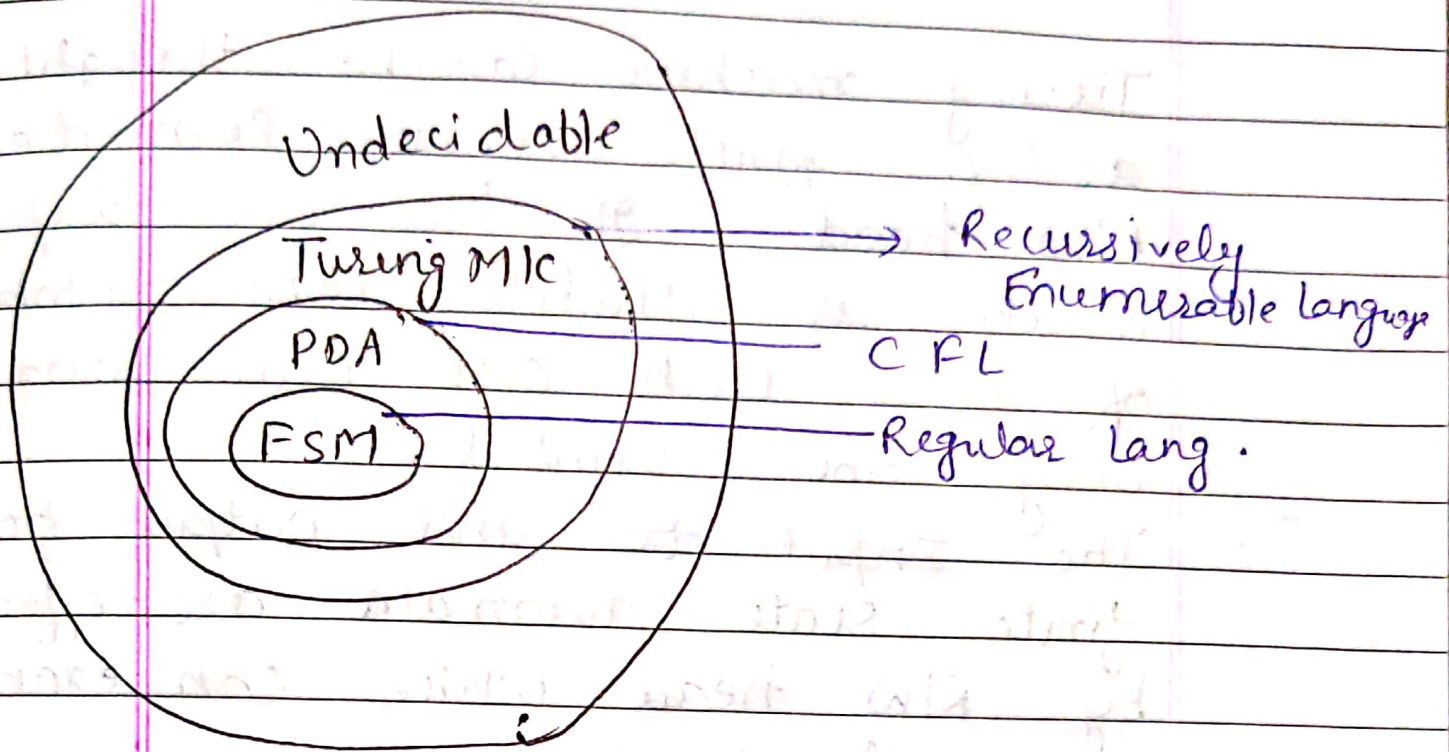 Undecidable
Turing M/c
PDA
FSM
Recursively
Enumerable Language
CFL
Regular Lang.